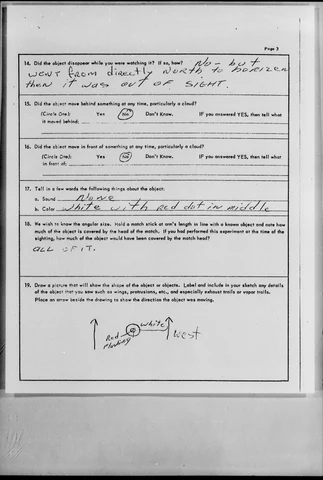 Page 3
14. Did the object disappear while you were watching it? If so, how? No - but
went from directly north to horizen
then it was out of sight.
15. Did the object move behind something at any time, particularly a cloud?
(Circle One): Yes No Don't Know. IF you answered YES, then tell what
it moved behind:
16. Did the object move in front of something at any time, particularly a cloud?
(Circle One): Yes No Don't Know. IF you answered YES, then tell what
in front of:
17. Tell in a few words the following things about the object:
a. Sound None
b. Color White with red dot in middle
18. We wish to know the angular size. Hold a match stick at arm's length in line with a known object and note how
much of the object is covered by the head of the match. If you had performed this experiment at the time of the
sighting, how much of the object would have been covered by the match head?
all of it.
19. Draw a picture that will show the shape of the object or objects. Label and include in your sketch any details
of the object that you saw such as wings, protrusions, etc., and especially exhaust trails or vapor trails.
Place an arrow beside the drawing to show the direction the object was moving.
White
Red
west